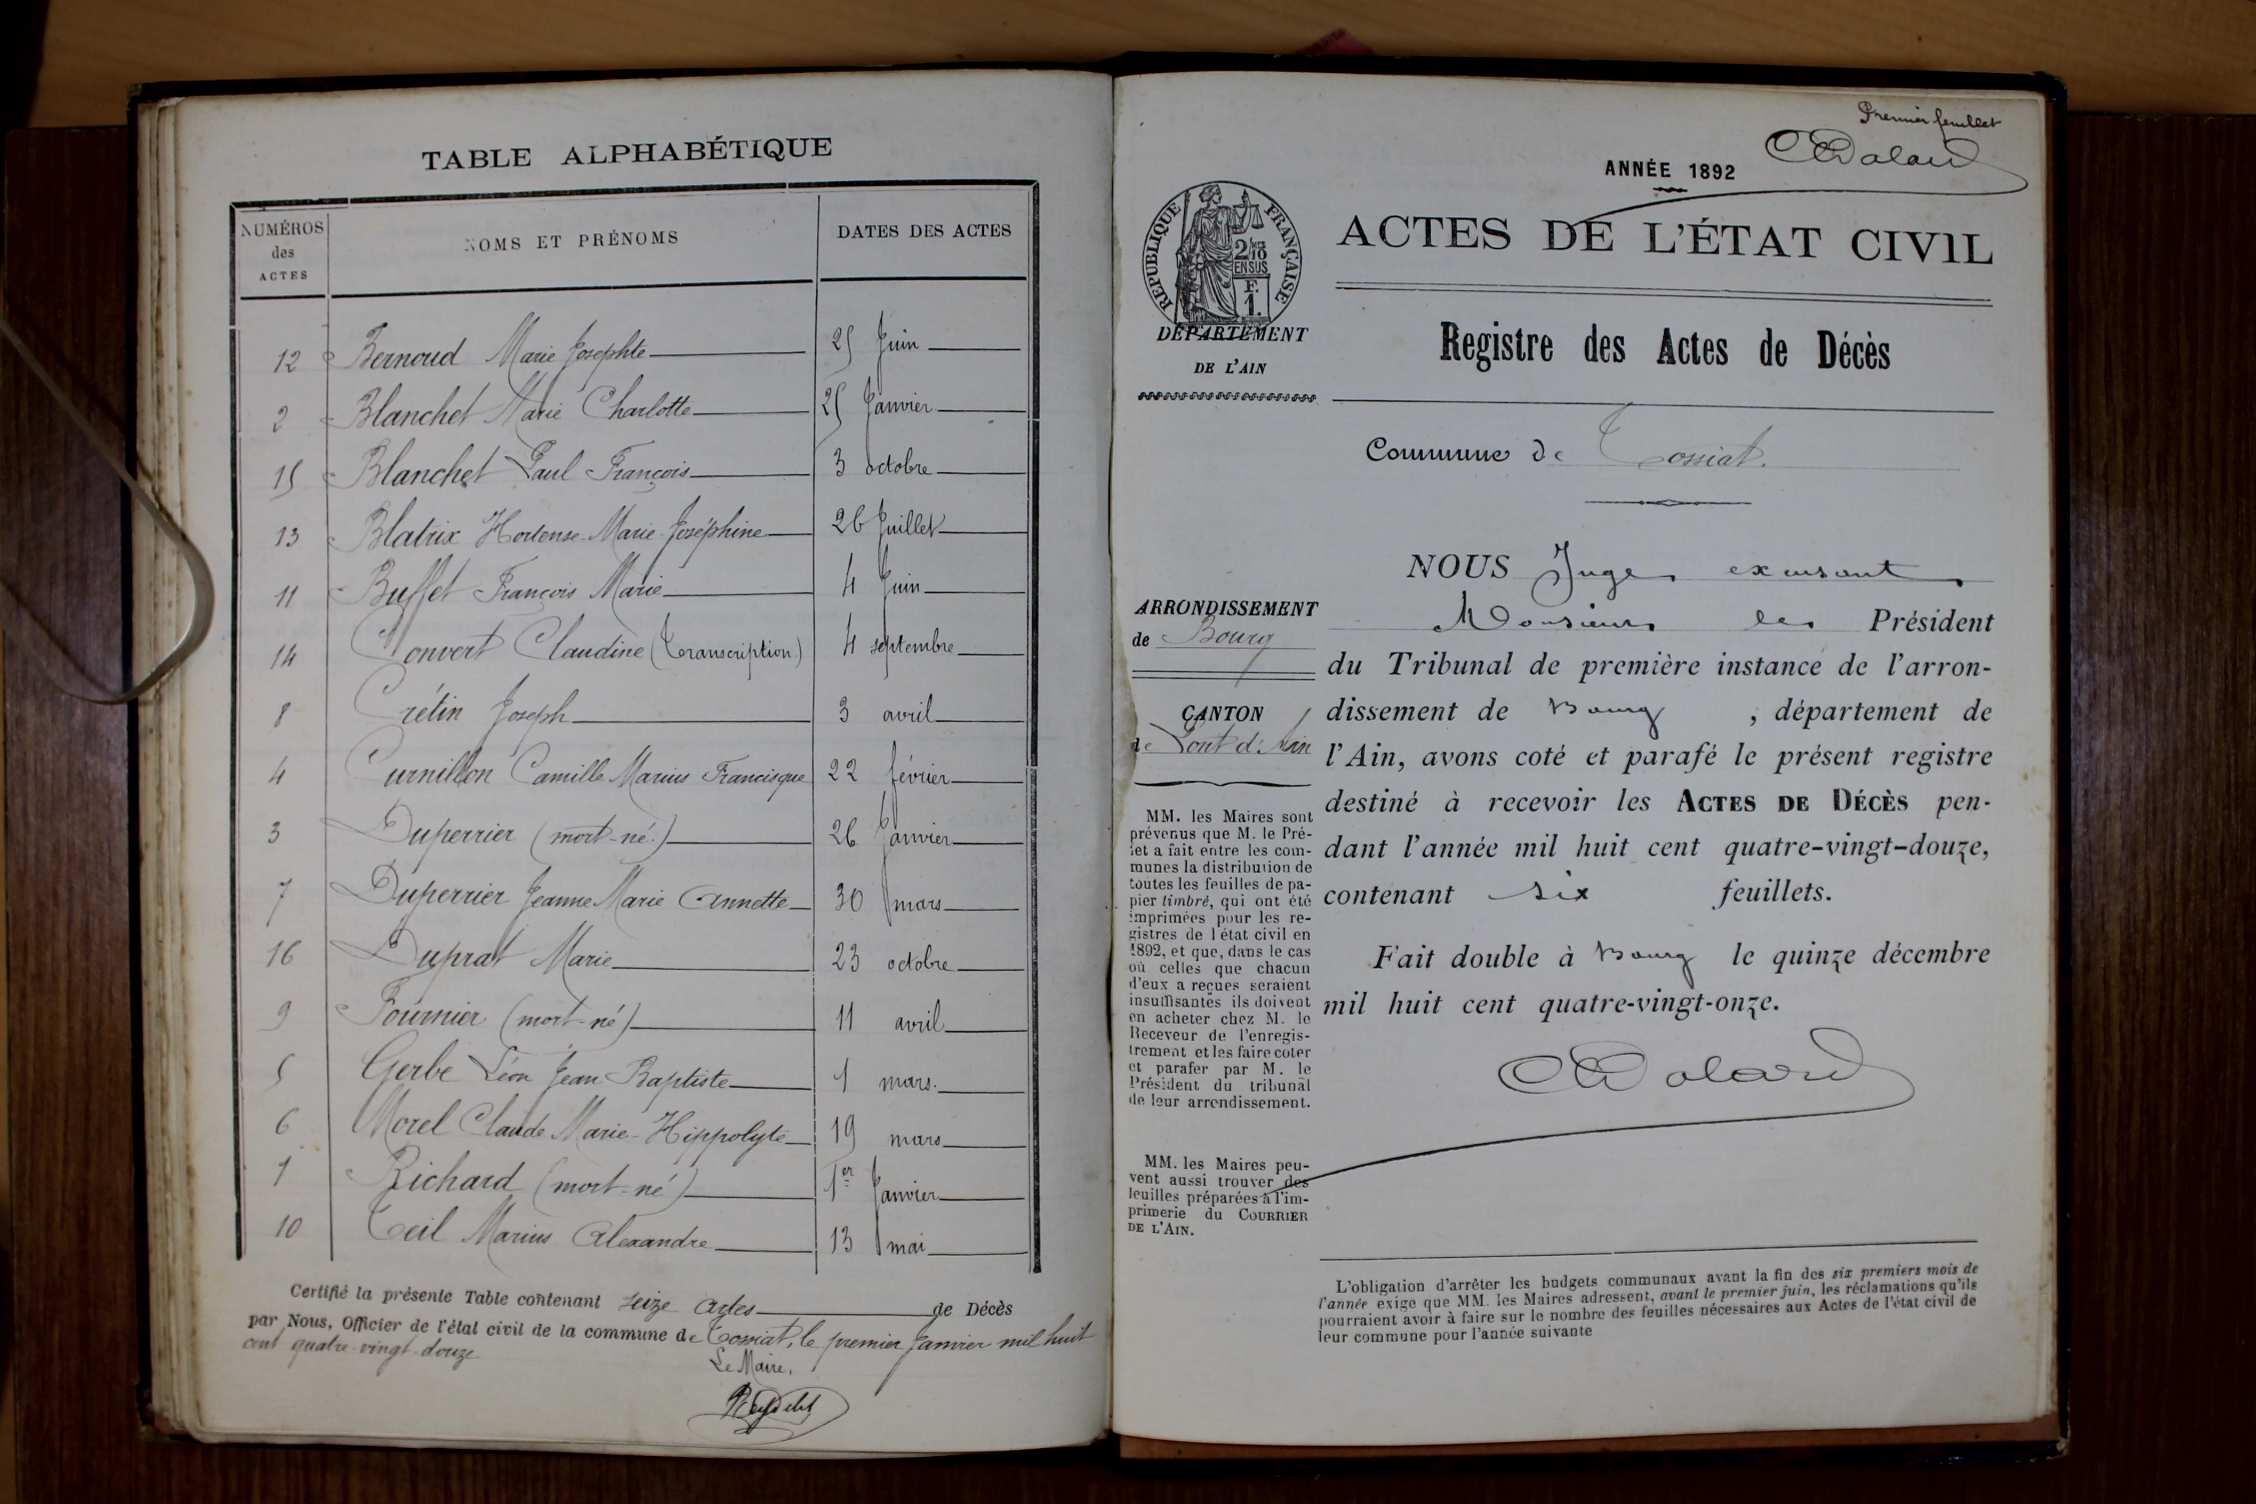 TABLE ALPHABÉTIQUE
NUMÉROS des ACTES NOMS ET PRÉNOMS DATES DES ACTES
12 Bernoud Marie Josephte 25 Juin
2 Blanchet Marie Charlotte 25 Janvier
15 Blanchet Paul François 3 octobre
13 Blatrix Hortense Marie Joséphine 26 Juillet
11 Buffet François Marie 4 Juin
14 Convert Claudine (Transcription) 4 septembre
8 Crétin Joseph 3 avril
4 Curnillon Camille Marius Francisque 22 février
3 Duperrier (mort-né) 26 Janvier
7 Duperrier Jeanne Marie Annette 30 mars
16 Duprat Marie 23 octobre
9 Fournier (mort-né) 11 avril
5 Gerbe Léon Jean Baptiste 1 mars.
6 Morel Claude Marie-Hippolyte 19 mars
1 Richard (mort-né) 1er Janvier
10 Teil Marius Alexandre 13 mai
Certifié la présente Table contenant seize actes de Décès
par Nous, Officier de l'état civil de la commune de Tossiat, le premier Janvier mil huit
cent quatre-vingt-douze
Le Maire,
Premier feuillet
ANNÉE 1892
RÉPUBLIQUE FRANÇAISE
2/10
EN SUS
F.
1.
ACTES DE L'ÉTAT CIVIL
DÉPARTEMENT
DE L'AIN
Registre des Actes de Décès
Commune de Tossiat.
ARRONDISSEMENT
de Bourg
CANTON
de Pont d'Ain
MM. les Maires sont
prévenus que M. le Pré-
fet a fait entre les com-
munes la distribution de
toutes les feuilles de pa-
pier timbré, qui ont été
imprimées pour les re-
gistres de l'état civil en
1892, et que, dans le cas
où celles que chacun
d'eux a reçues seraient
insuffisantes ils doivent
en acheter chez M. le
Receveur de l'enregis-
trement et les faire coter
et parafer par M. le
Président du tribunal
de leur arrondissement.
MM. les Maires peu-
vent aussi trouver des
feuilles préparées à l'im-
primerie du COURRIER
DE L'AIN.
NOUS Juge excusant
Monsieur le Président
du Tribunal de première instance de l'arron-
dissement de Bourg, département de
l'Ain, avons coté et parafé le présent registre
destiné à recevoir les ACTES DE DÉCÈS pen-
dant l'année mil huit cent quatre-vingt-douze,
contenant six feuillets.
Fait double à Bourg le quinze décembre
mil huit cent quatre-vingt-onze.
L'obligation d'arrêter les budgets communaux avant la fin des six premiers mois de
l'année exige que MM. les Maires adressent, avant le premier juin, les réclamations qu'ils
pourraient avoir à faire sur le nombre des feuilles nécessaires aux Actes de l'état civil de
leur commune pour l'année suivante